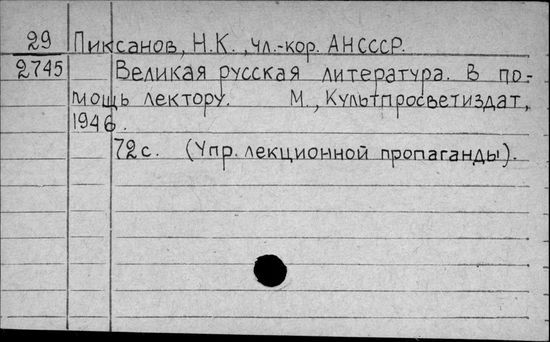 29 Пиксанов, Н.К., чл.-кор. АНСССР.
2745 Великая русская литература. В по-
мощь лектору. М., Культпросветиздат,
1946.
72с. (Упр. лекционной пропаганды).